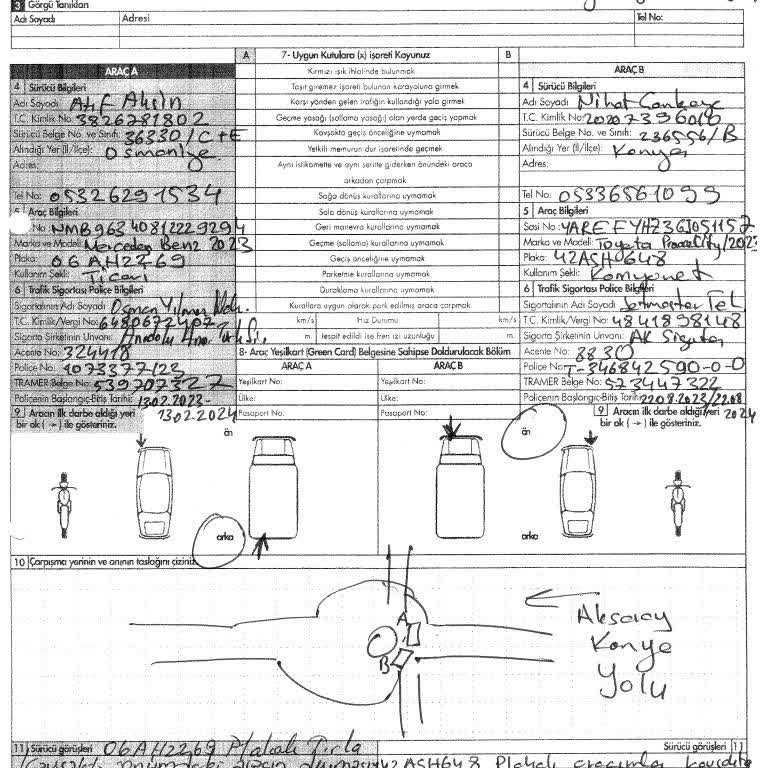 3 Görgü Tanıkları
Adı Soyadı Adresi Tel No:
A 7- Uygun Kutulara (x) işareti Koyunuz B
ARAÇ A
4 Sürücü Bilgileri
Adı Soyadı: Atıf Akın
T.C. Kimlik No: 3826781802
Sürücü Belge No. ve Sınıfı: 36330/C+E
Alındığı Yer (İl/İlçe): Osmaniye
Adres:
Tel No: 05326291534
5 Araç Bilgileri
No: NMB96340812229294
Marka ve Modeli: Mercedes Benz 2023
Plaka: 06 AH2269
Kullanım Şekli: Ticari
6 Trafik Sigortası Poliçe Bilgileri
Sigortalının Adı Soyadı: Osman Yılmaz
T.C. Kimlik/Vergi No: 6480672407
Sigorta Şirketinin Unvanı: Anadolu
Acente No: 324418
Poliçe No: 1073377123
TRAMER Belge No: 539707327
Poliçenin Başlangıç-Bitiş Tarihi: 13.02.2023-
13.02.2024
9 Aracın ilk darbe aldığı yeri
bir ok (→) ile gösteriniz.
Kırmızı ışık ihlalinde bulunmak
Taşıt giremez işareti bulunan karayoluna girmek
Karşı yönden gelen trafiğin kullandığı yola girmek
Geçme yasağı (sollama yasağı) olan yerde geçiş yapmak
Kavşakta geçiş önceliğine uymamak
Yetkili memurun dur işaretinde geçmek
Aynı istikamette ve aynı şeritte giderken önündeki araca
arkadan çarpmak
Sağa dönüş kurallarına uymamak
Sola dönüş kurallarına uymamak
Geri manevra kurallarına uymamak
Geçme (sollama) kurallarına uymamak
Geçiş önceliğine uymamak
Parketme kurallarına uymamak
Duraklama kurallarına uymamak
Kurallara uygun olarak park edilmiş araca çarpmak
km/s Hız Durumu km/s
m. tespit edildi ise fren izi uzunluğu m.
8- Araç Yeşilkart (Green Card) Belgesine Sahipse Doldurulacak Bölüm
ARAÇ A ARAÇ B
Yeşilkart No: Yeşilkart No:
Ülke: Ülke:
Pasaport No: Pasaport No:
ARAÇ B
4 Sürücü Bilgileri
Adı Soyadı: Nihat
T.C. Kimlik No: 20207396010
Sürücü Belge No. ve Sınıfı: 236556/B
Alındığı Yer (İl/İlçe): Konya
Adres:
Tel No: 05336561099
5 Araç Bilgileri
Şasi No: YAREFYHZ3GJ051157
Marka ve Modeli: Toyota ProaceCity/2023
Plaka: 42ASH648
Kullanım Şekli: Kamyonet
6 Trafik Sigortası Poliçe Bilgileri
Sigortalının Adı Soyadı: Tel
T.C. Kimlik/Vergi No: 4841898148
Sigorta Şirketinin Unvanı: AK Sigorta
Acente No: 8830
Poliçe No: T-346842590-0-0
TRAMER Belge No: 573447322
Poliçenin Başlangıç-Bitiş Tarihi: 22.08.2023/22.08
2024
9 Aracın ilk darbe aldığı yeri
bir ok (→) ile gösteriniz.
ön ön
arka arka
10 Çarpışma yerinin ve anının taslağını çiziniz.
A
B
Aksaray
Konya
Yolu
11 Sürücü görüşleri 06AH2269 Plakalı Tırla Sürücü görüşleri 11
42 ASH648 Plakalı